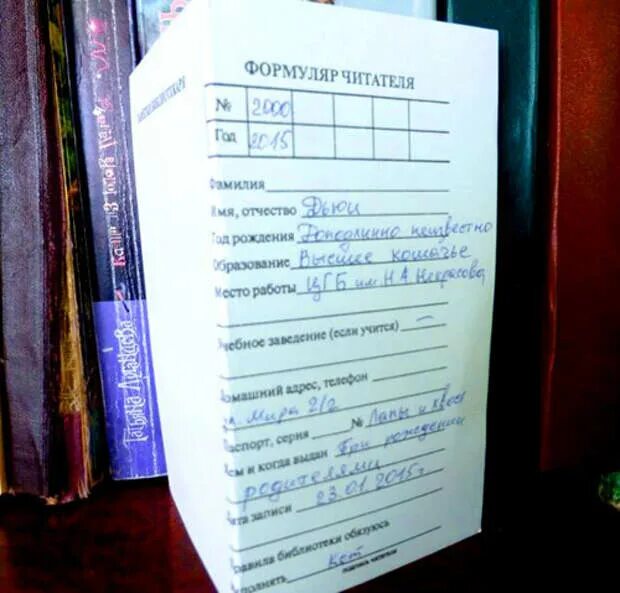 ФОРМУЛЯР ЧИТАТЕЛЯ
№ 2000
Год 2015
Фамилия
Имя, отчество Дьюи
Год рождения Доподлинно неизвестно
Образование Высшее кошачье
Место работы ЦГБ им. Н.А. Некрасова
чебное заведение (если учится) —
омашний адрес, телефон
пл. Мира 2/2
аспорт, серия № Лапы и хвост
ем и когда выдан При рождении
родителями
ата записи 23.01.2015г
равила библиотеки обязуюсь
полнять кот
подпись читателя
Татьяна